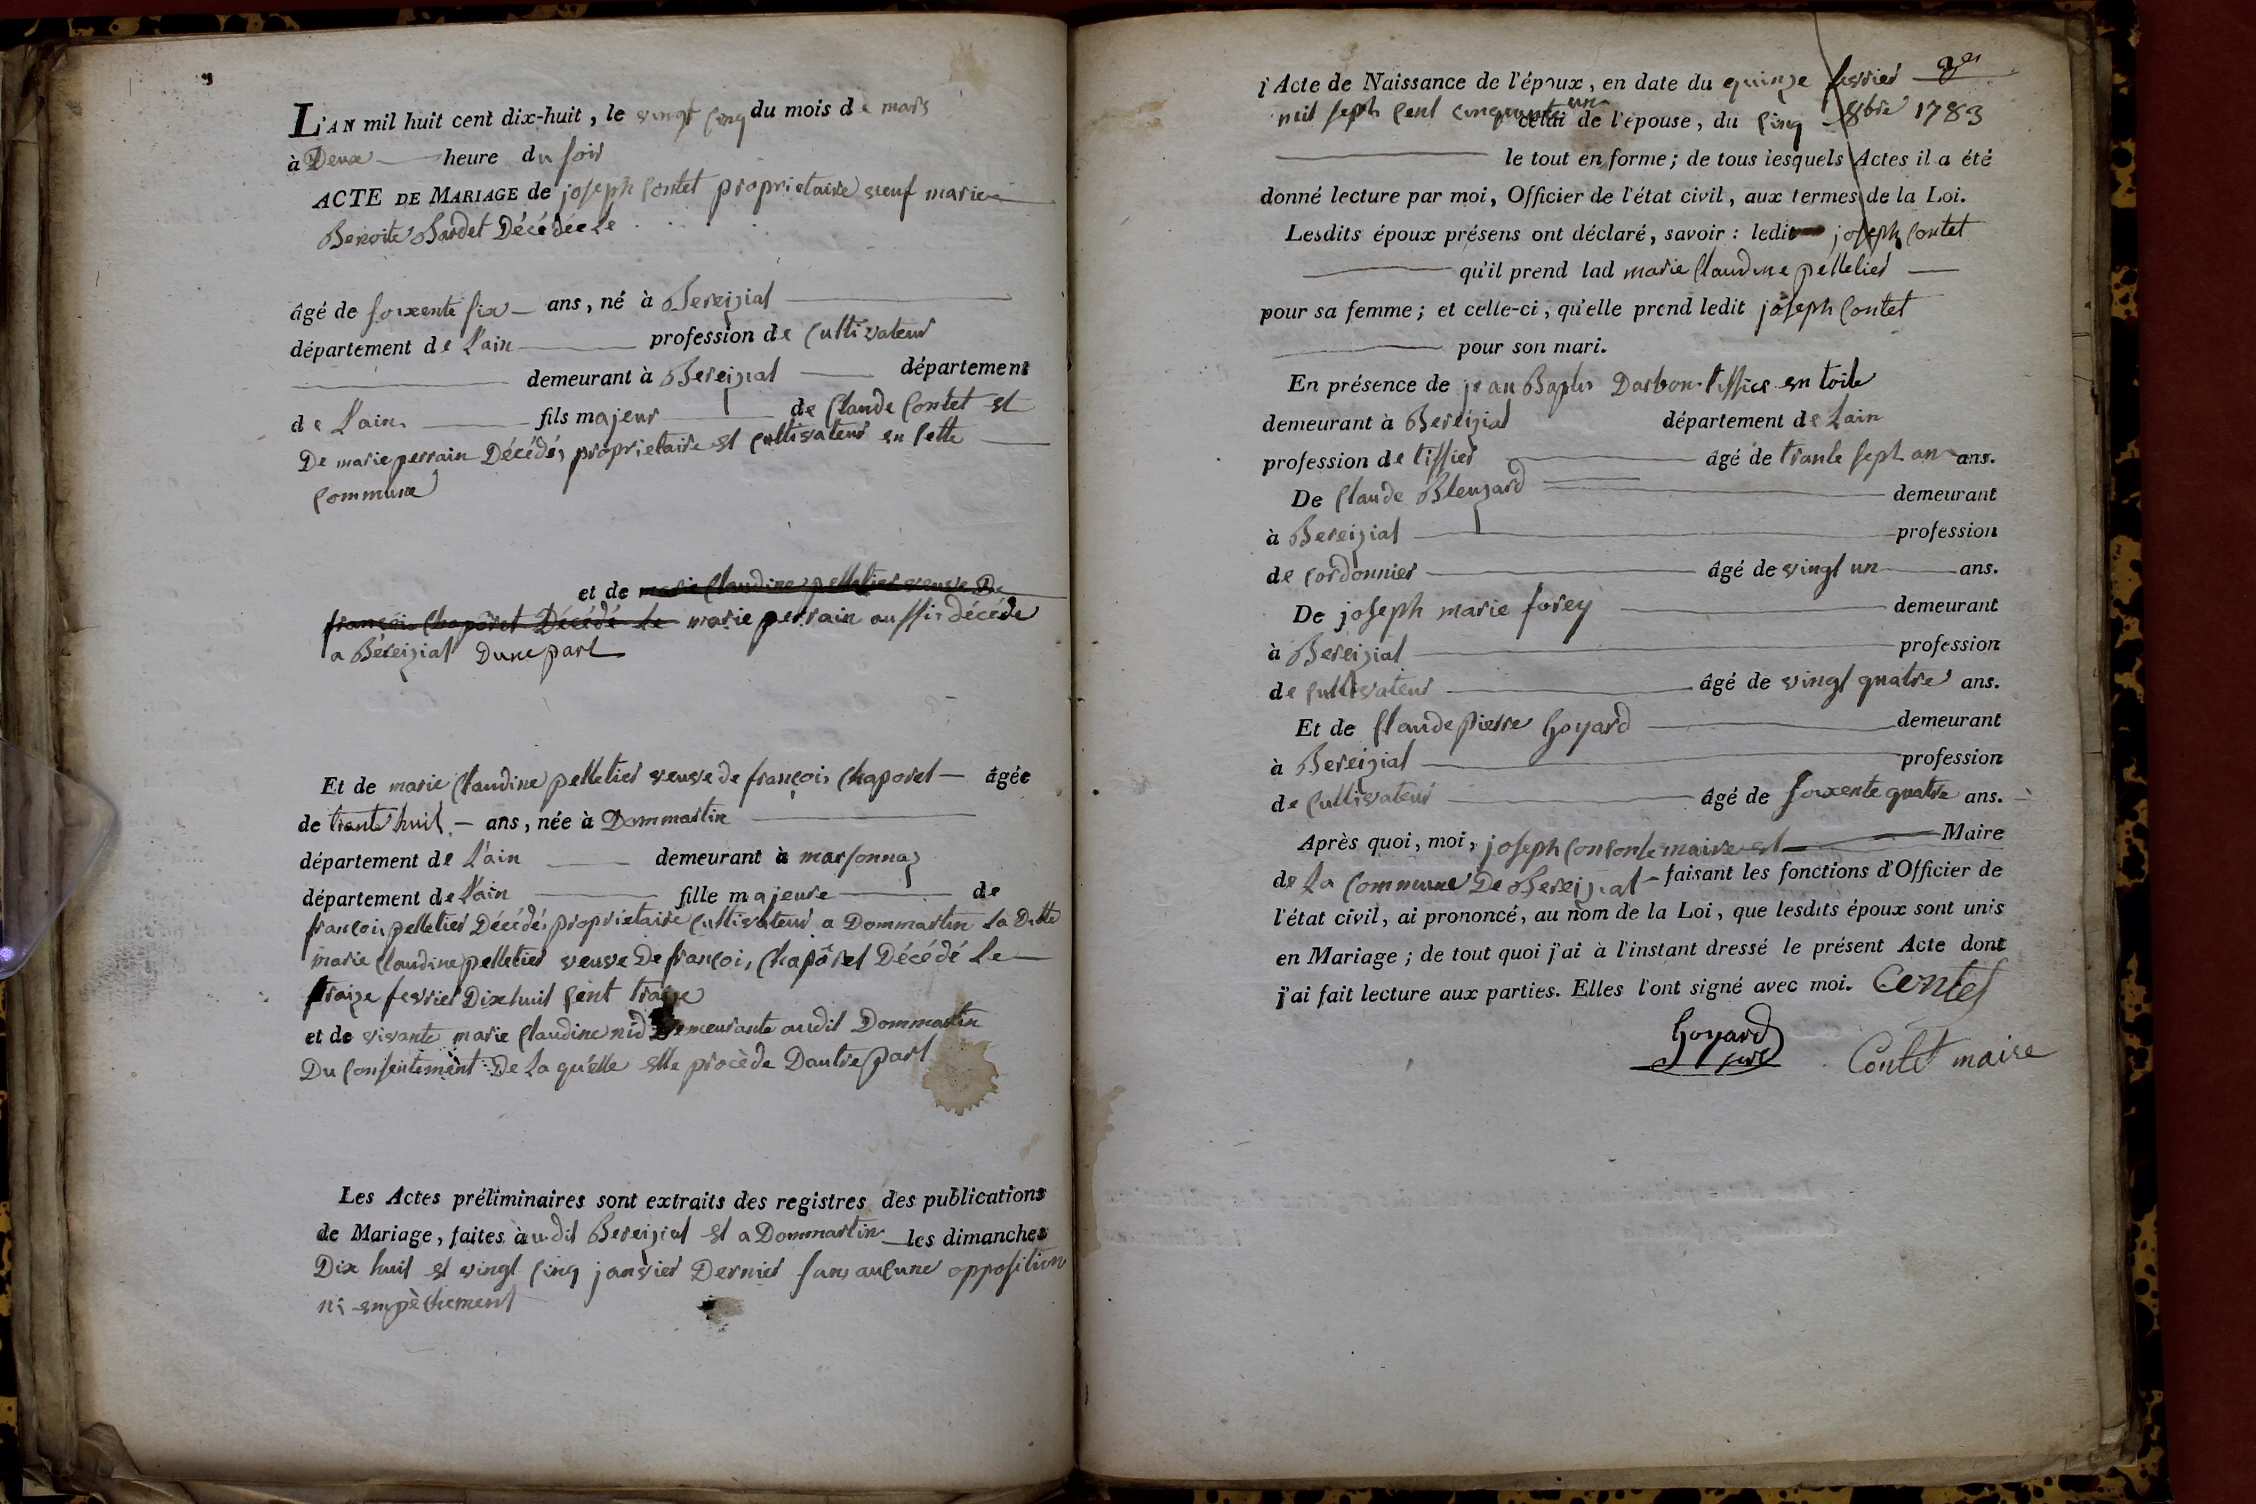 L'AN mil huit cent dix-huit, le vingt cinq du mois de mars
à Deux heure du soir
ACTE DE MARIAGE de joseph Contet proprietaire veuf marie
Benoite Bardet Décédée le
âgé de soixente six ans, né à Bereizial
département de L'ain profession de Cultivateur
demeurant à Bereizial département
de L'ain fils majeur de Claude Contet et
De marie perrain Décédés proprietaire et cultivateur en cette
Commune
et de marie Claudine pelletier veuve De
françois Chaporet Décédé le marie perrain aussi décéde
a Béreizial Dune part
Et de marie Claudine pelletier veuve de françois Chaporet âgée
de trente huit ans, née à Dommartin
département de L'ain demeurant à marsonnaz
département de L'ain fille majeure de
françois pelletier Décédés proprietaire Cultivateur a Dommartin La Ditte
marie Claudine pelletier veuve De françois Chapôret Décédé Le
traize fevrier Dixhuit Cent traize
et de vivante marie Claudine nid Demeurante audit Dommartin
Du Consentement De La qu'elle elle procède Dautre part
Les Actes préliminaires sont extraits des registres des publications
de Mariage, faites à udit Bereizial et a Dommartin les dimanches
Dix huit et vingt Cinq janvier Dernier sans aucune opposition
ni empèchement
l'Acte de Naissance de l'époux, en date du quinze fevrier
mil sept Cent Cinquante un celui de l'épouse, du Cinq 8bre 1783
le tout en forme; de tous lesquels Actes il a été
donné lecture par moi, Officier de l'état civil, aux termes de la Loi.
Lesdits époux présens ont déclaré, savoir: ledit joseph Contet
qu'il prend lad marie Claudine pelletier
pour sa femme; et celle-ci, qu'elle prend ledit joseph Contet
pour son mari.
En présence de jean Baptis Darbon tissier en toile
demeurant à Bereizial département de Lain
profession de tissier âgé de trante sept an ans.
De Claude Bleuzard demeurant
à Bereizial profession
de Cordonnier âgé de vingt un ans.
De joseph marie forey demeurant
à Bereizial profession
de Cultivateur âgé de vingt quatre ans.
Et de Claude pierre Goyard demeurant
à Bereizial profession
de Cultivateur âgé de soixente quatre ans.
Après quoi, moi, joseph maire et Maire
de La Commune De Bereizial faisant les fonctions d'Officier de
l'état civil, ai prononcé, au nom de la Loi, que lesdits époux sont unis
en Mariage; de tout quoi j'ai à l'instant dressé le présent Acte dont
j'ai fait lecture aux parties. Elles l'ont signé avec moi. Contet
Goyard
Contet maire